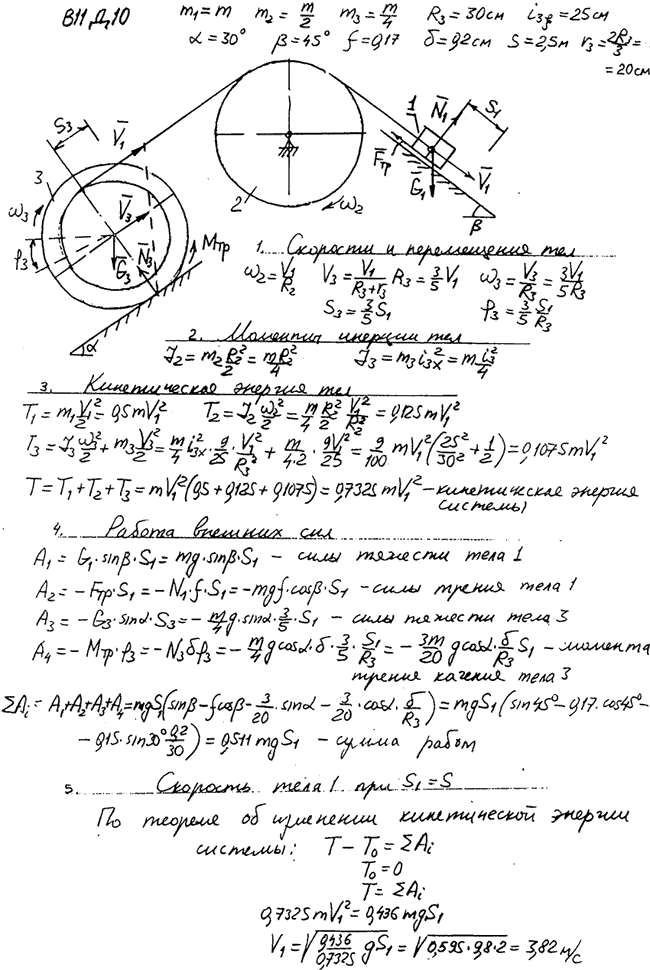 В11 Д10 m₁=m m₂=m/2 m₃=m/4 R₃=30см i₃ₓ=25см
α=30° β=45° f=0,17 δ=0,2см S=2,5м r₃=2R₃/3=
=20см
S₃ V̄₁ 1 N̄₁ S₁
3 F̄тр V̄₁
ω₃ V̄₃ Ḡ₁
φ₃ Ḡ₃ N̄₃ Mтр 2 ω₂ β
α
1. Скорости и перемещения тел
ω₂=V₁/R₂ V₃=V₁/(R₃+r₃) R₃=3/5 V₁ ω₃=V₃/R₃=3V₁/5R₃
S₃=3/5 S₁ φ₃=3/5 S₁/R₃
2. Моменты инерции тел
J₂=m₂R₂²/2=mR₂²/4 J₃=m₃i₃ₓ²=m i₃²/4
3. Кинетическая энергия тел
T₁=m₁V₁²/2=0,5mV₁² T₂=J₂ω₂²/2=m/4 R₂²/2 V₁²/R₂²=0,125mV₁²
T₃=J₃ω₃²/2+m₃V₃²/2=m/4 i₃ₓ²·9/25·V₁²/R₃²+m/4·2·9V₁²/25=9/100 mV₁²(25²/30²+1/2)=0,1075mV₁²
T=T₁+T₂+T₃=mV₁²(0,5+0,125+0,1075)=0,7325mV₁²-кинетическая энергия
системы
4. Работа внешних сил
A₁=G₁·sinβ·S₁=mg·sinβ·S₁ - силы тяжести тела 1
A₂=-Fтр·S₁=-N₁·f·S₁=-mgf·cosβ·S₁ -силы трения тела 1
A₃=-G₃·sinα·S₃=-m/4 g·sinα·3/5·S₁ - силы тяжести тела 3
A₄=-Mтр·φ₃=-N₃δφ₃=-m/4 gcosα·δ·3/5·S₁/R₃=-3m/20 gcosα·δ/R₃ S₁ - момента
трения качения тела 3
ΣAᵢ=A₁+A₂+A₃+A₄=mgS₁(sinβ-fcosβ-3/20·sinα-3/20·cosα·δ/R₃)=mgS₁(sin45°-0,17·cos45°-
-0,15·sin30°0,2/30)=0,511mgS₁ - сумма работ
5. Скорость тела 1 при S₁=S
По теореме об изменении кинетической энергии
системы: T-T₀=ΣAᵢ
T₀=0
T=ΣAᵢ
0,7325mV₁²=0,436mgS₁
V₁=√(0,436/0,7325 gS₁)=√(0,595·9,8·2)=3,82м/с